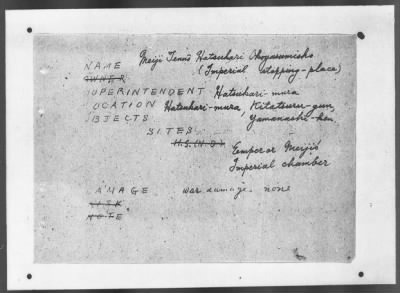 NAME Meiji Tennō Hatsukari Okoyasumisho
(Imperial stopping-place)
OWNER
SUPERINTENDENT Hatsukari-mura
LOCATION Hatsukari-mura, Kitatsuru-gun,
Yamanashi-ken,
OBJECTS
SITES
Emperor Meiji's
Imperial chamber
DAMAGE war damage. none
RISK
NOTE